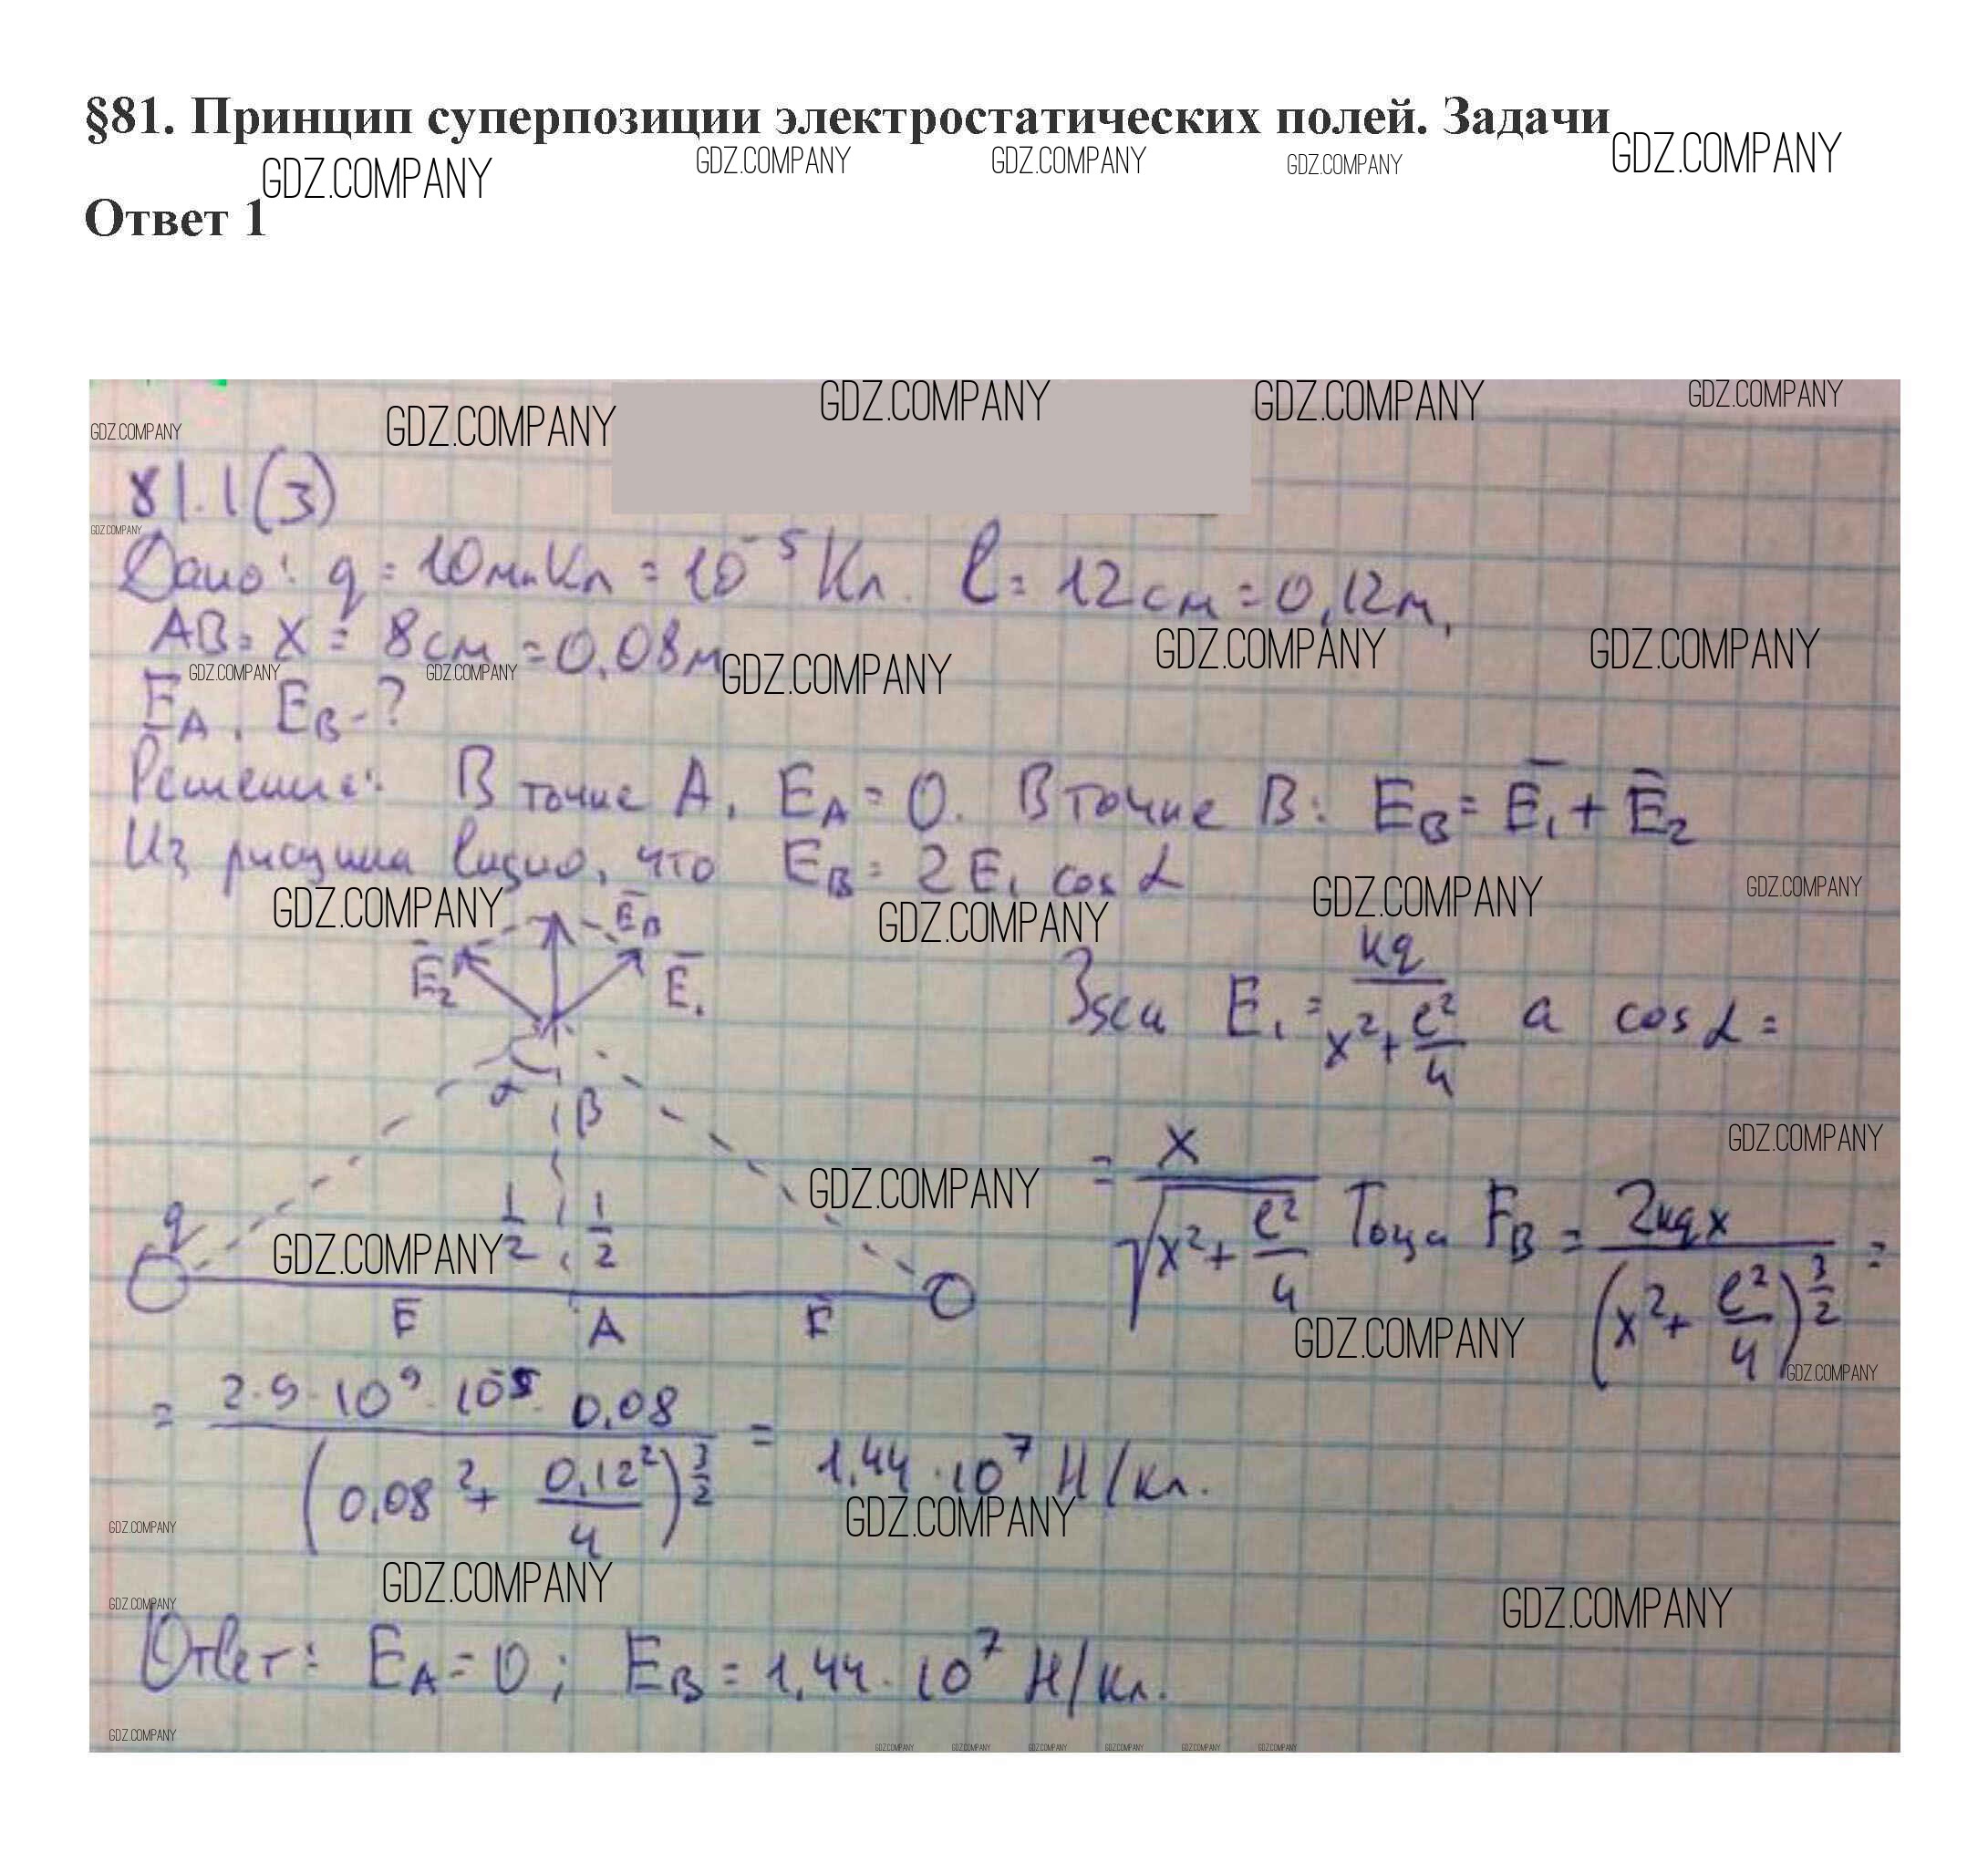 §81. Принцип суперпозиции электростатических полей. Задачи
GDZ.COMPANY GDZ.COMPANY GDZ.COMPANY GDZ.COMPANY GDZ.COMPANY
Ответ 1
GDZ.COMPANY GDZ.COMPANY GDZ.COMPANY GDZ.COMPANY GDZ.COMPANY
81.1(3)
GDZ.COMPANY
Дано: q = 10мкКл = 10⁻⁵ Кл. l = 12см = 0,12м,
AB = x = 8см = 0,08м
GDZ.COMPANY GDZ.COMPANY GDZ.COMPANY GDZ.COMPANY GDZ.COMPANY
E̅A, EB - ?
Решение: В точке A, EA = 0. В точке B: EB = E̅₁ + E̅₂
Из рисунка видно, что EB = 2E₁ cos α
GDZ.COMPANY GDZ.COMPANY GDZ.COMPANY GDZ.COMPANY
E̅B
E̅₂ E̅₁
α β
q
1/2 1/2
E̅ A E̅
E₁ = kq / (x² + l²/4) а cos α =
GDZ.COMPANY
= x / √(x² + l²/4) Тогда EB = 2kqx / (x² + l²/4)^(3/2) =
GDZ.COMPANY GDZ.COMPANY GDZ.COMPANY GDZ.COMPANY
= 2·9·10⁹·10⁻⁵·0,08 / (0,08² + 0,12²/4)^(3/2) = 1,44·10⁷ Н/Кл.
GDZ.COMPANY GDZ.COMPANY
GDZ.COMPANY GDZ.COMPANY GDZ.COMPANY
Ответ: EA = 0; EB = 1,44·10⁷ Н/Кл.
GDZ.COMPANY GDZ.COMPANY GDZ.COMPANY GDZ.COMPANY GDZ.COMPANY GDZ.COMPANY GDZ.COMPANY